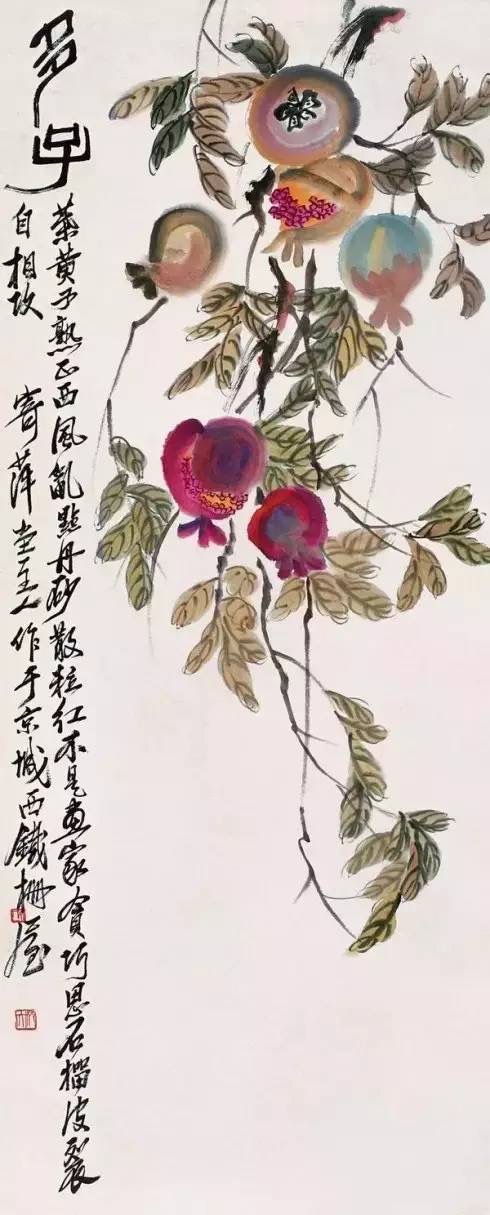 多子
葉黄子熟正西風亂點丹砂散粒紅不是畫家巧思石榴皮裂
自相攻 寄萍堂主人作于京城西鐵柵屋